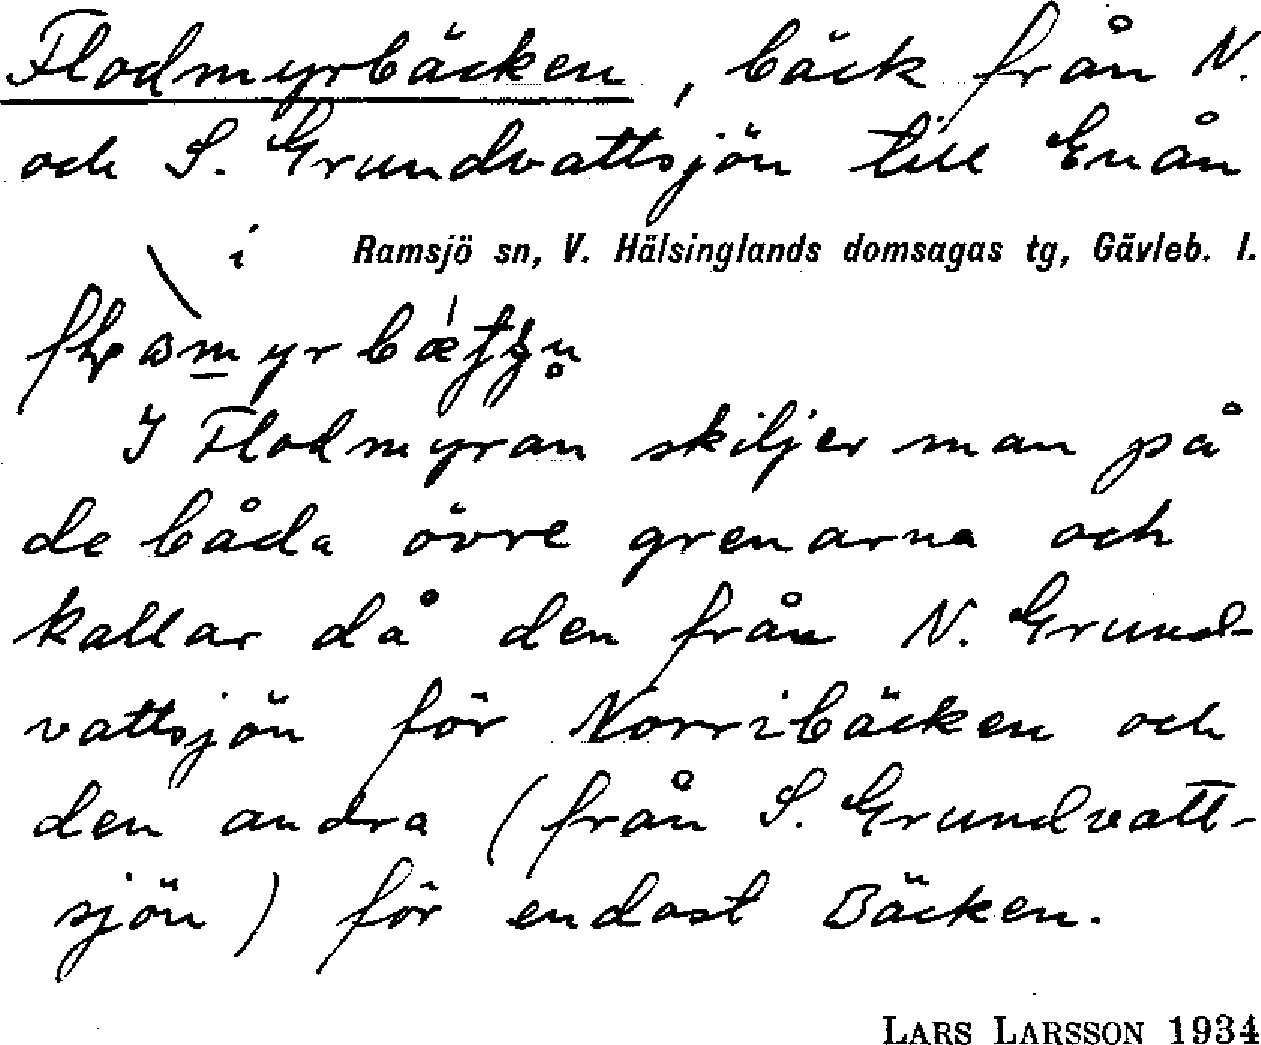 Flodmyrbäcken, bäck från N.
och S. Grundvattsjön till Enån
i Ramsjö sn, V. Hälsinglands domsagas tg, Gävleb. l.
I Flodmyran skiljer man på
de båda övre grenarna och
kallar då den från N. Grund-
vattsjön för Norribäcken och
den andra (från S. Grundvatt-
sjön) för endast Bäcken.
LARS LARSSON 1934